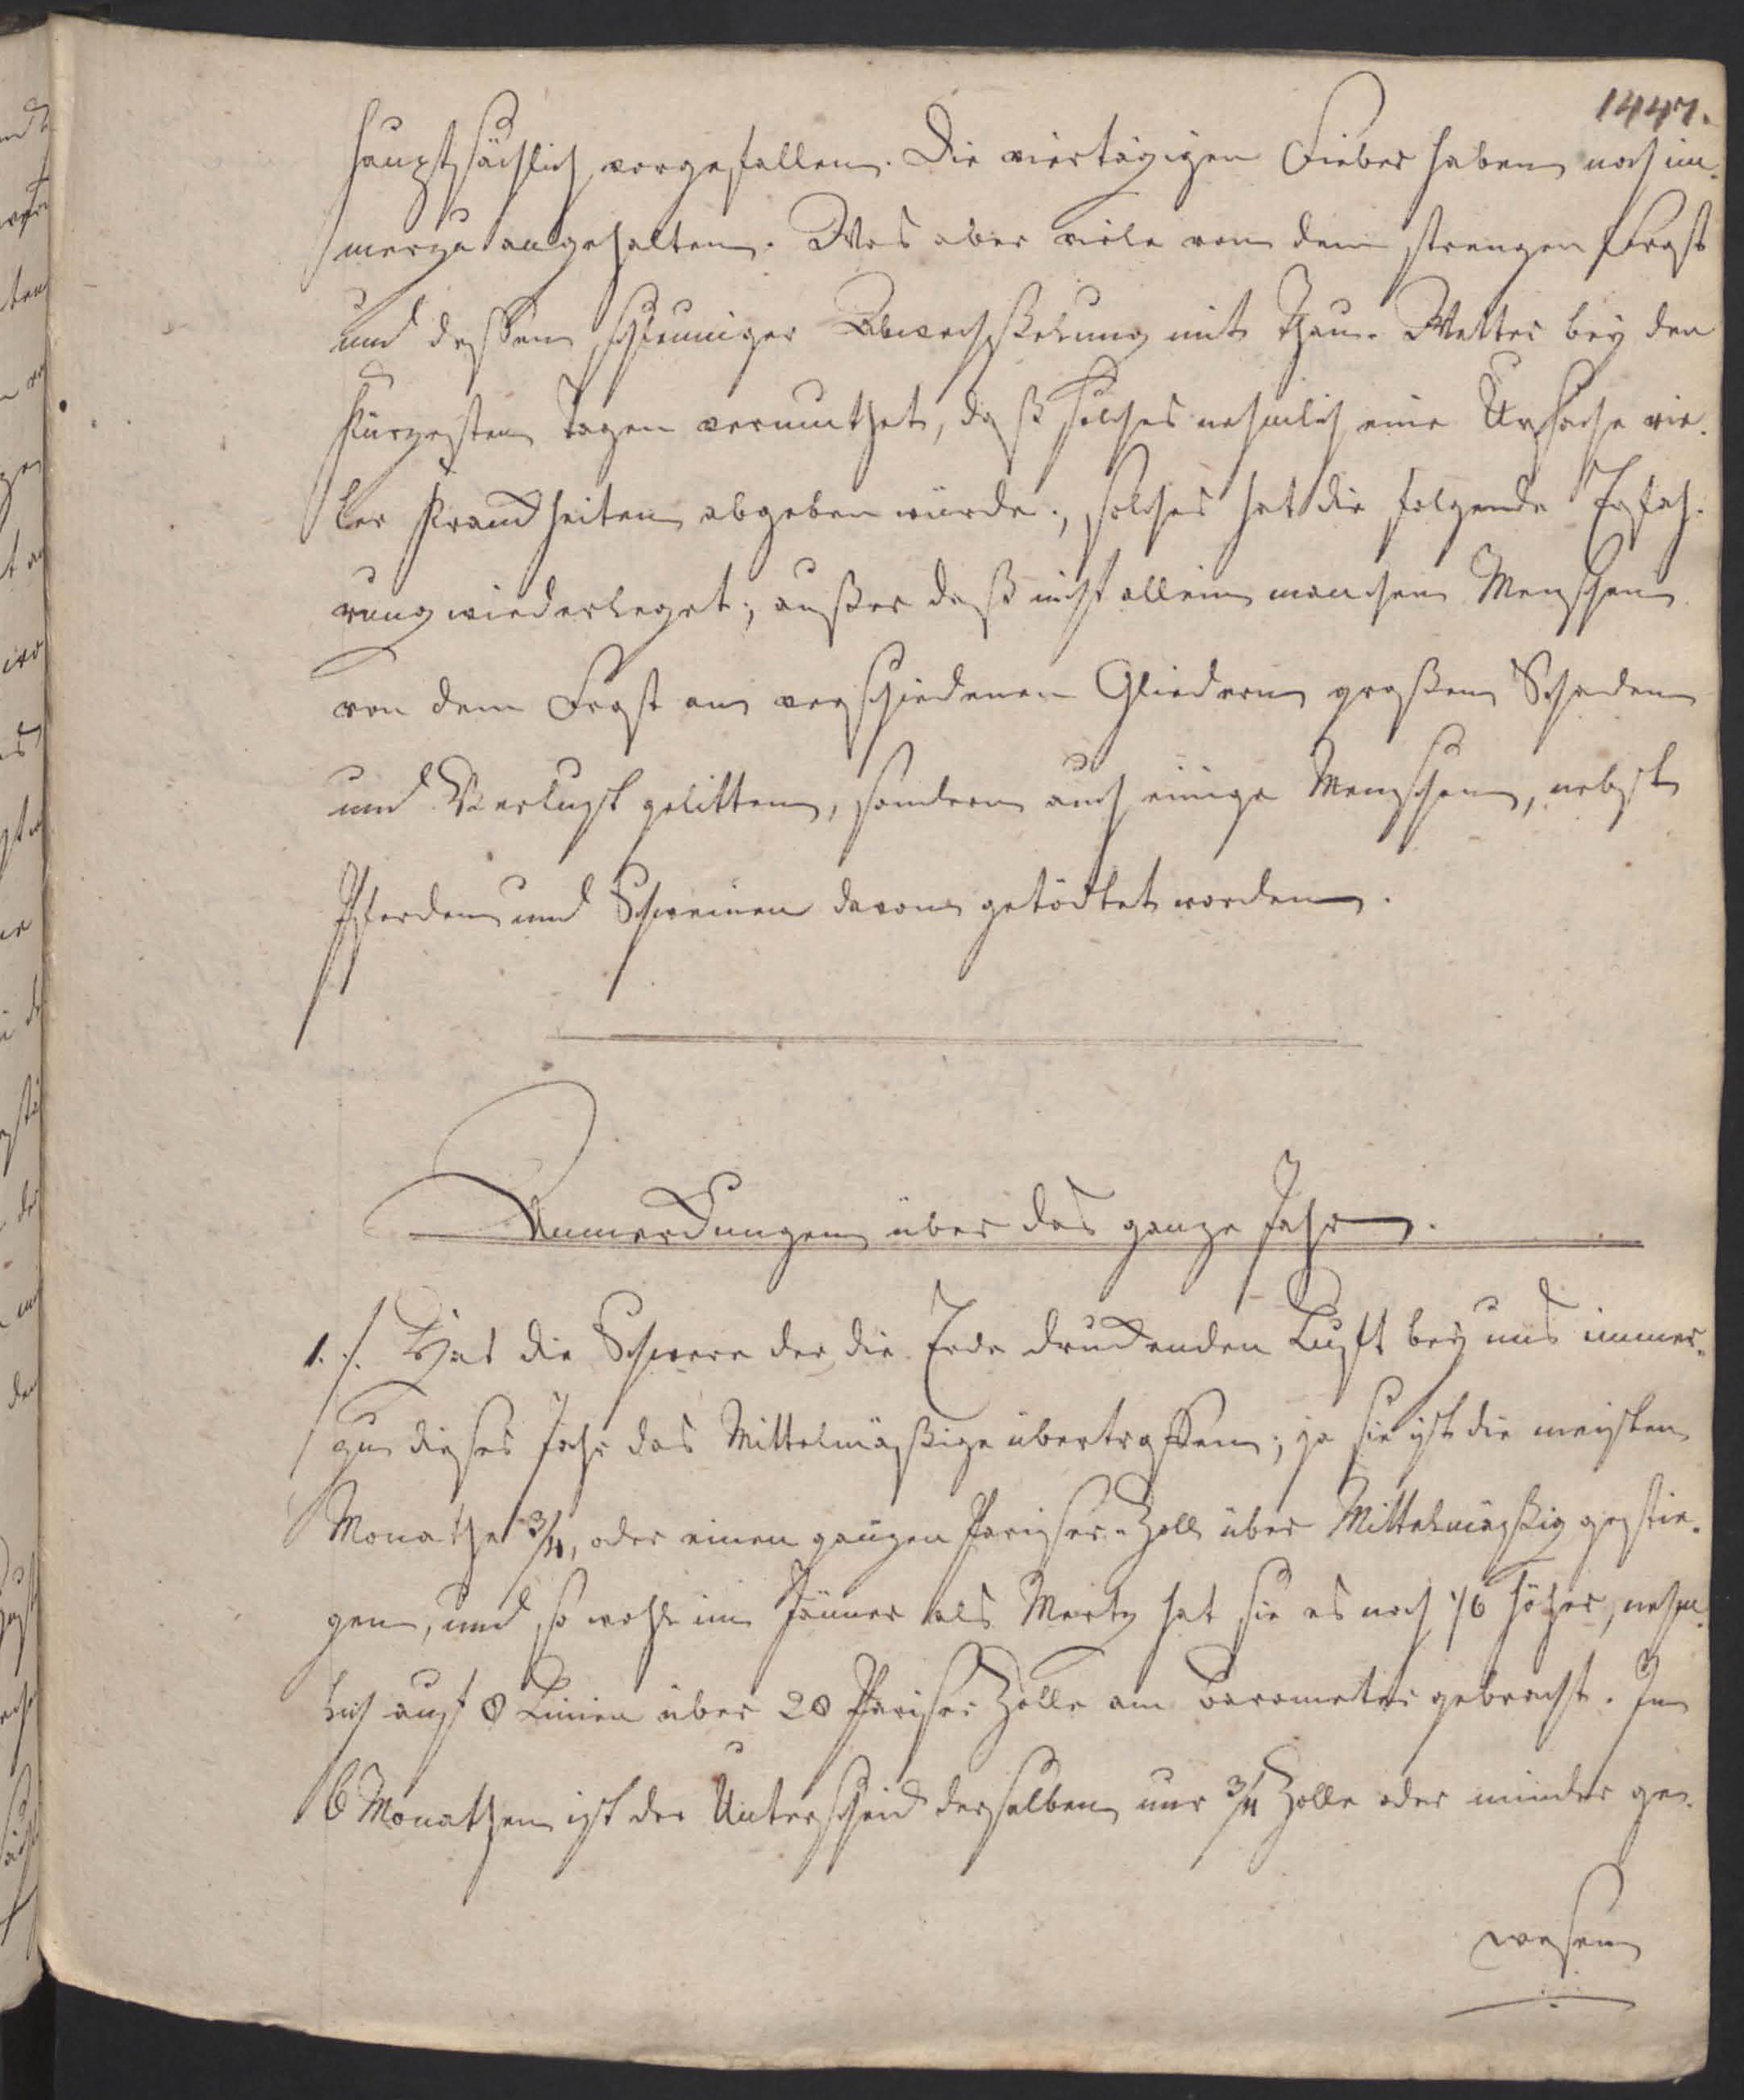 1447.
hauptsächlich vorgefallen. Die viertägigen Fieber haben noch im-
merzu angehalten. Was aber viele von dem strengen Frost
und dessen schleuniger Abwechsselung mit Thau-Wetter bey den
kürzesten Tagen vermuthet, daß solches nehmlich eine Ursache vie-
ler Kranckheiten abgeben würde; solches hat die folgende Erfah-
rung wiederleget; außer daß nicht allein manchen Menschen
von dem Frost an verschiedenen Gliedern großen Schaden
und Verlust gelitten, sondern auch einige Menschen, nebst
Pferden und Schweinen davon getödtet worden.
Anmerckungen über das ganze Jahr.
1./. Hat die Schwere der die Erde druckenden Luft bey uns immer-
zu dieses Jahr das Mittelmäßige übertroffen; ja sie ist die meisten
Monathe 3/4, oder einen ganzen Pariser-Zoll über Mittelmäßig gestie-
gen, und so wohl im Jänner als Mertz hat sie es noch 1/6 höher, nehm-
lich auf 8 Linien über 28 Pariser Zolle am Barometer gebracht. In
6 Monathen ist der Unterscheid derselben nur 3/4 Zolle oder minder ge-
wesen